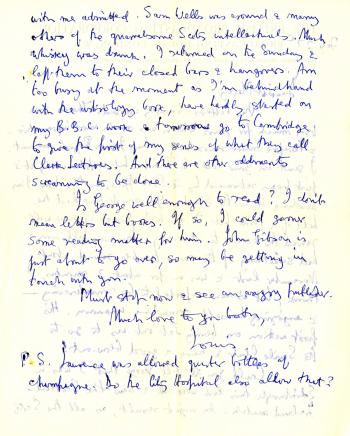 with me admitted. Sam Wells was around & many
others of the quarrelsome Scots intellectuals. Much
whiskey was drunk. I returned on the Sunday &
left them to their closed bars & hangovers. Am
too busy at the moment as I'm behindhand
with the astrology book, have hardly started on
my B.B.C. work & tomorrow go to Cambridge
to give the first of my series of what they call
Clark Lectures. And there are other oddments
screaming to be done.
Is George well enough to read? I don't
mean letters but books. If so, I could garner
some reading matter for him. John Gibson is
just about to go over, so may be getting in
touch with you.
Must stop now & see an angry builder.
Much love to you both,
Louis
P.S. Laurence was allowed quarter bottles of
champagne. Do the City Hospital also allow that?